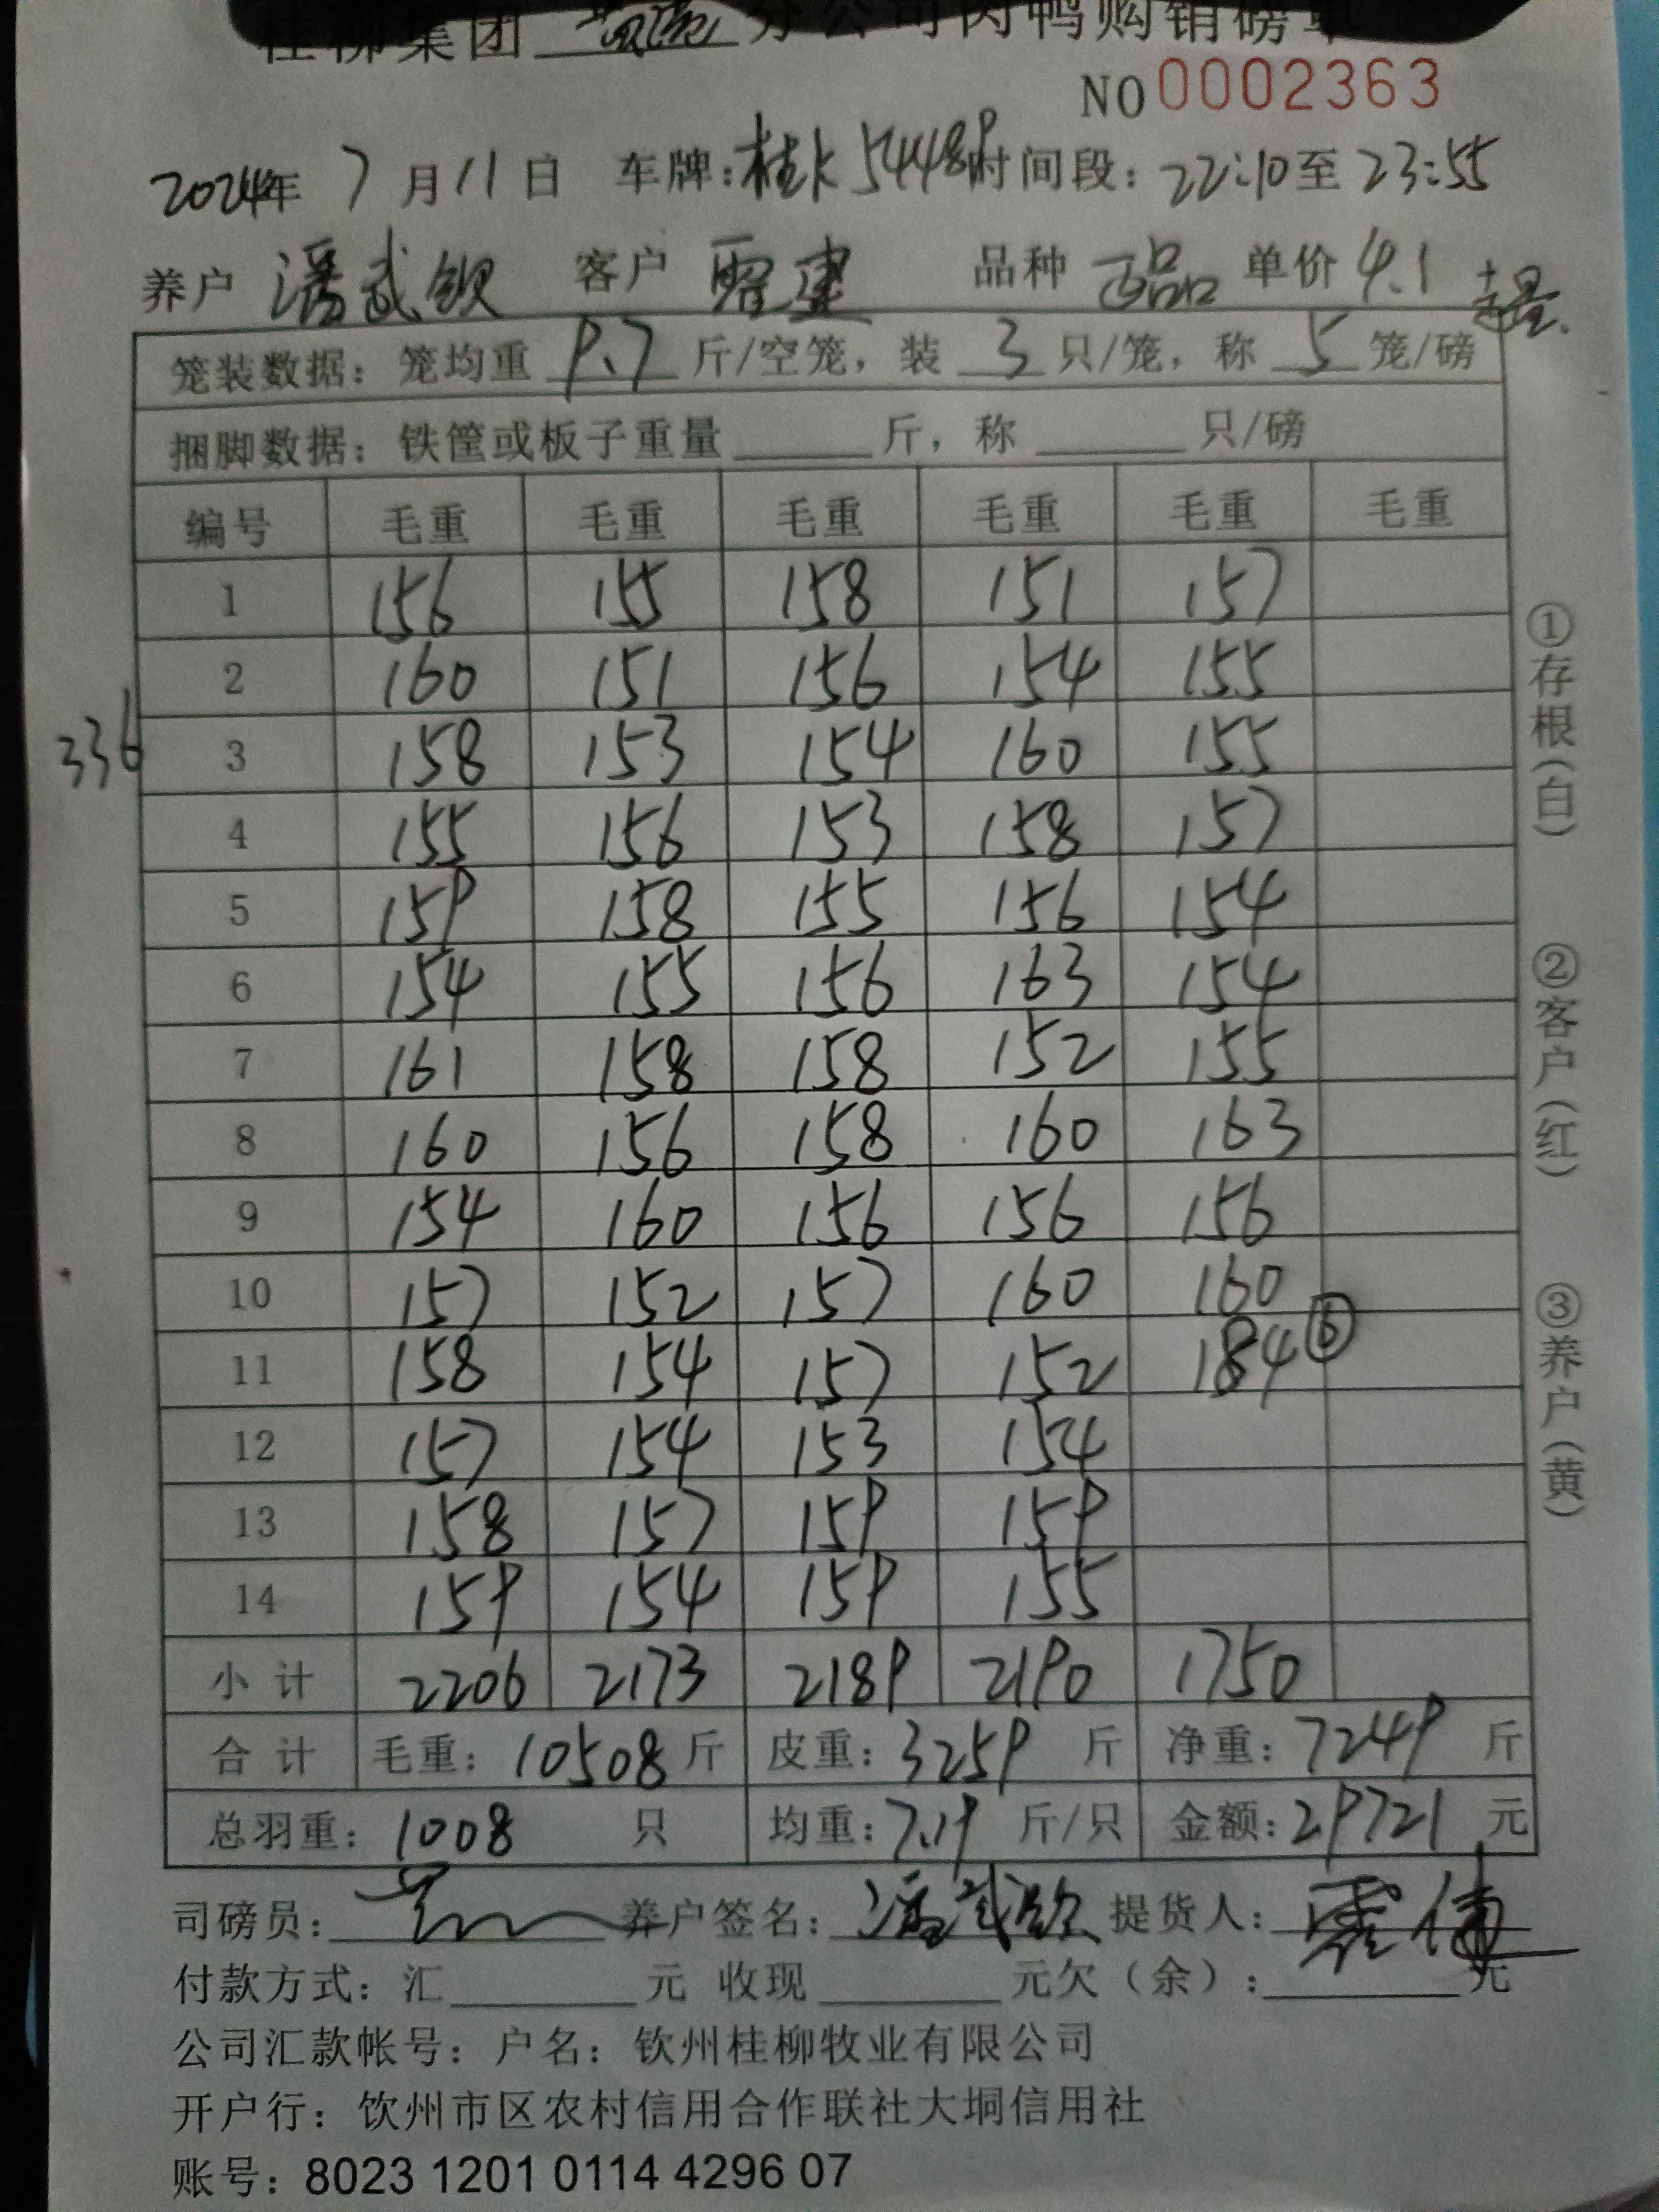 桂柳集团 分公司肉鸭购销磅单
NO 0002363
2024年 7 月 11 日 车牌: 桂K 5448P 时间段: 22:10 至 23:55
养户 潘武钦 客户 品种 品 单价 4.1
笼装数据: 笼均重 9.7 斤/空笼, 装 3 只/笼, 称 5 笼/磅
捆脚数据: 铁筐或板子重量 斤, 称 只/磅
编号 毛重 毛重 毛重 毛重 毛重 毛重
1 156 155 158 151 157
2 160 151 156 154 155
336
3 158 153 154 160 155
4 155 156 153 158 157
5 159 158 155 156 154
6 154 155 156 163 154
7 161 158 158 152 155
8 160 156 158 160 163
9 154 160 156 156 156
10 157 152 157 160 160
11 158 154 157 152 184 ⑥
12 157 154 153 154
13 158 157 159 159
14 159 154 159 155
小计 2206 2173 2189 2190 1750
合计 毛重: 10508 斤 皮重: 3259 斤 净重: 7249 斤
总羽重: 1008 只 均重: 7.19 斤/只 金额: 29721 元
①存根(白) ②客户(红) ③养户(黄)
司磅员: 养户签名: 潘武钦 提货人:
付款方式: 汇 元 收现 元欠(余): 元
公司汇款帐号: 户名: 钦州桂柳牧业有限公司
开户行: 钦州市区农村信用合作联社大垌信用社
账号: 8023 1201 0114 4296 07